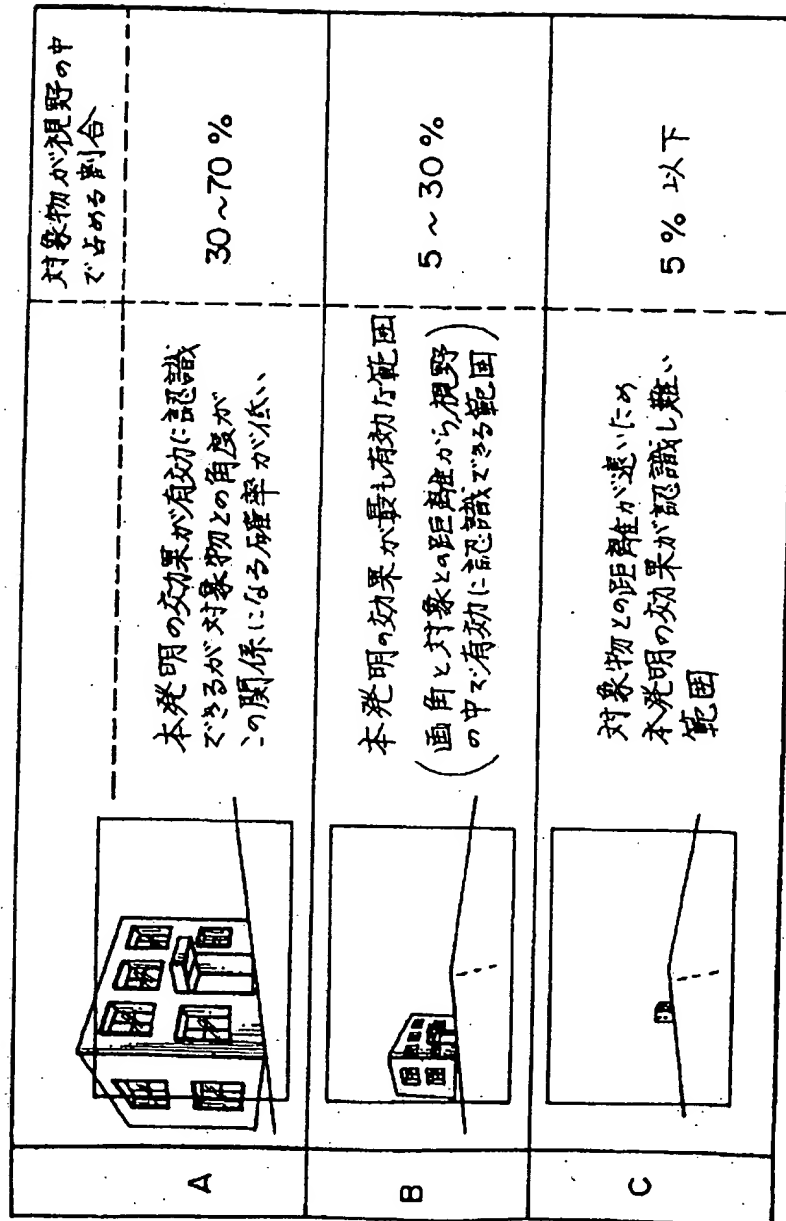 対象物が視野の中
で占める割合
A
本発明の効果が有効に認識
できるが対象物との角度が
この関係になる確率が低い
30~70%
B
本発明の効果が最も有効な範囲
(画角と対象との距離から視野
の中で有効に認識できる範囲)
5~30%
C
対象物との距離が遠いため
本発明の効果が認識し難い
範囲
5%以下